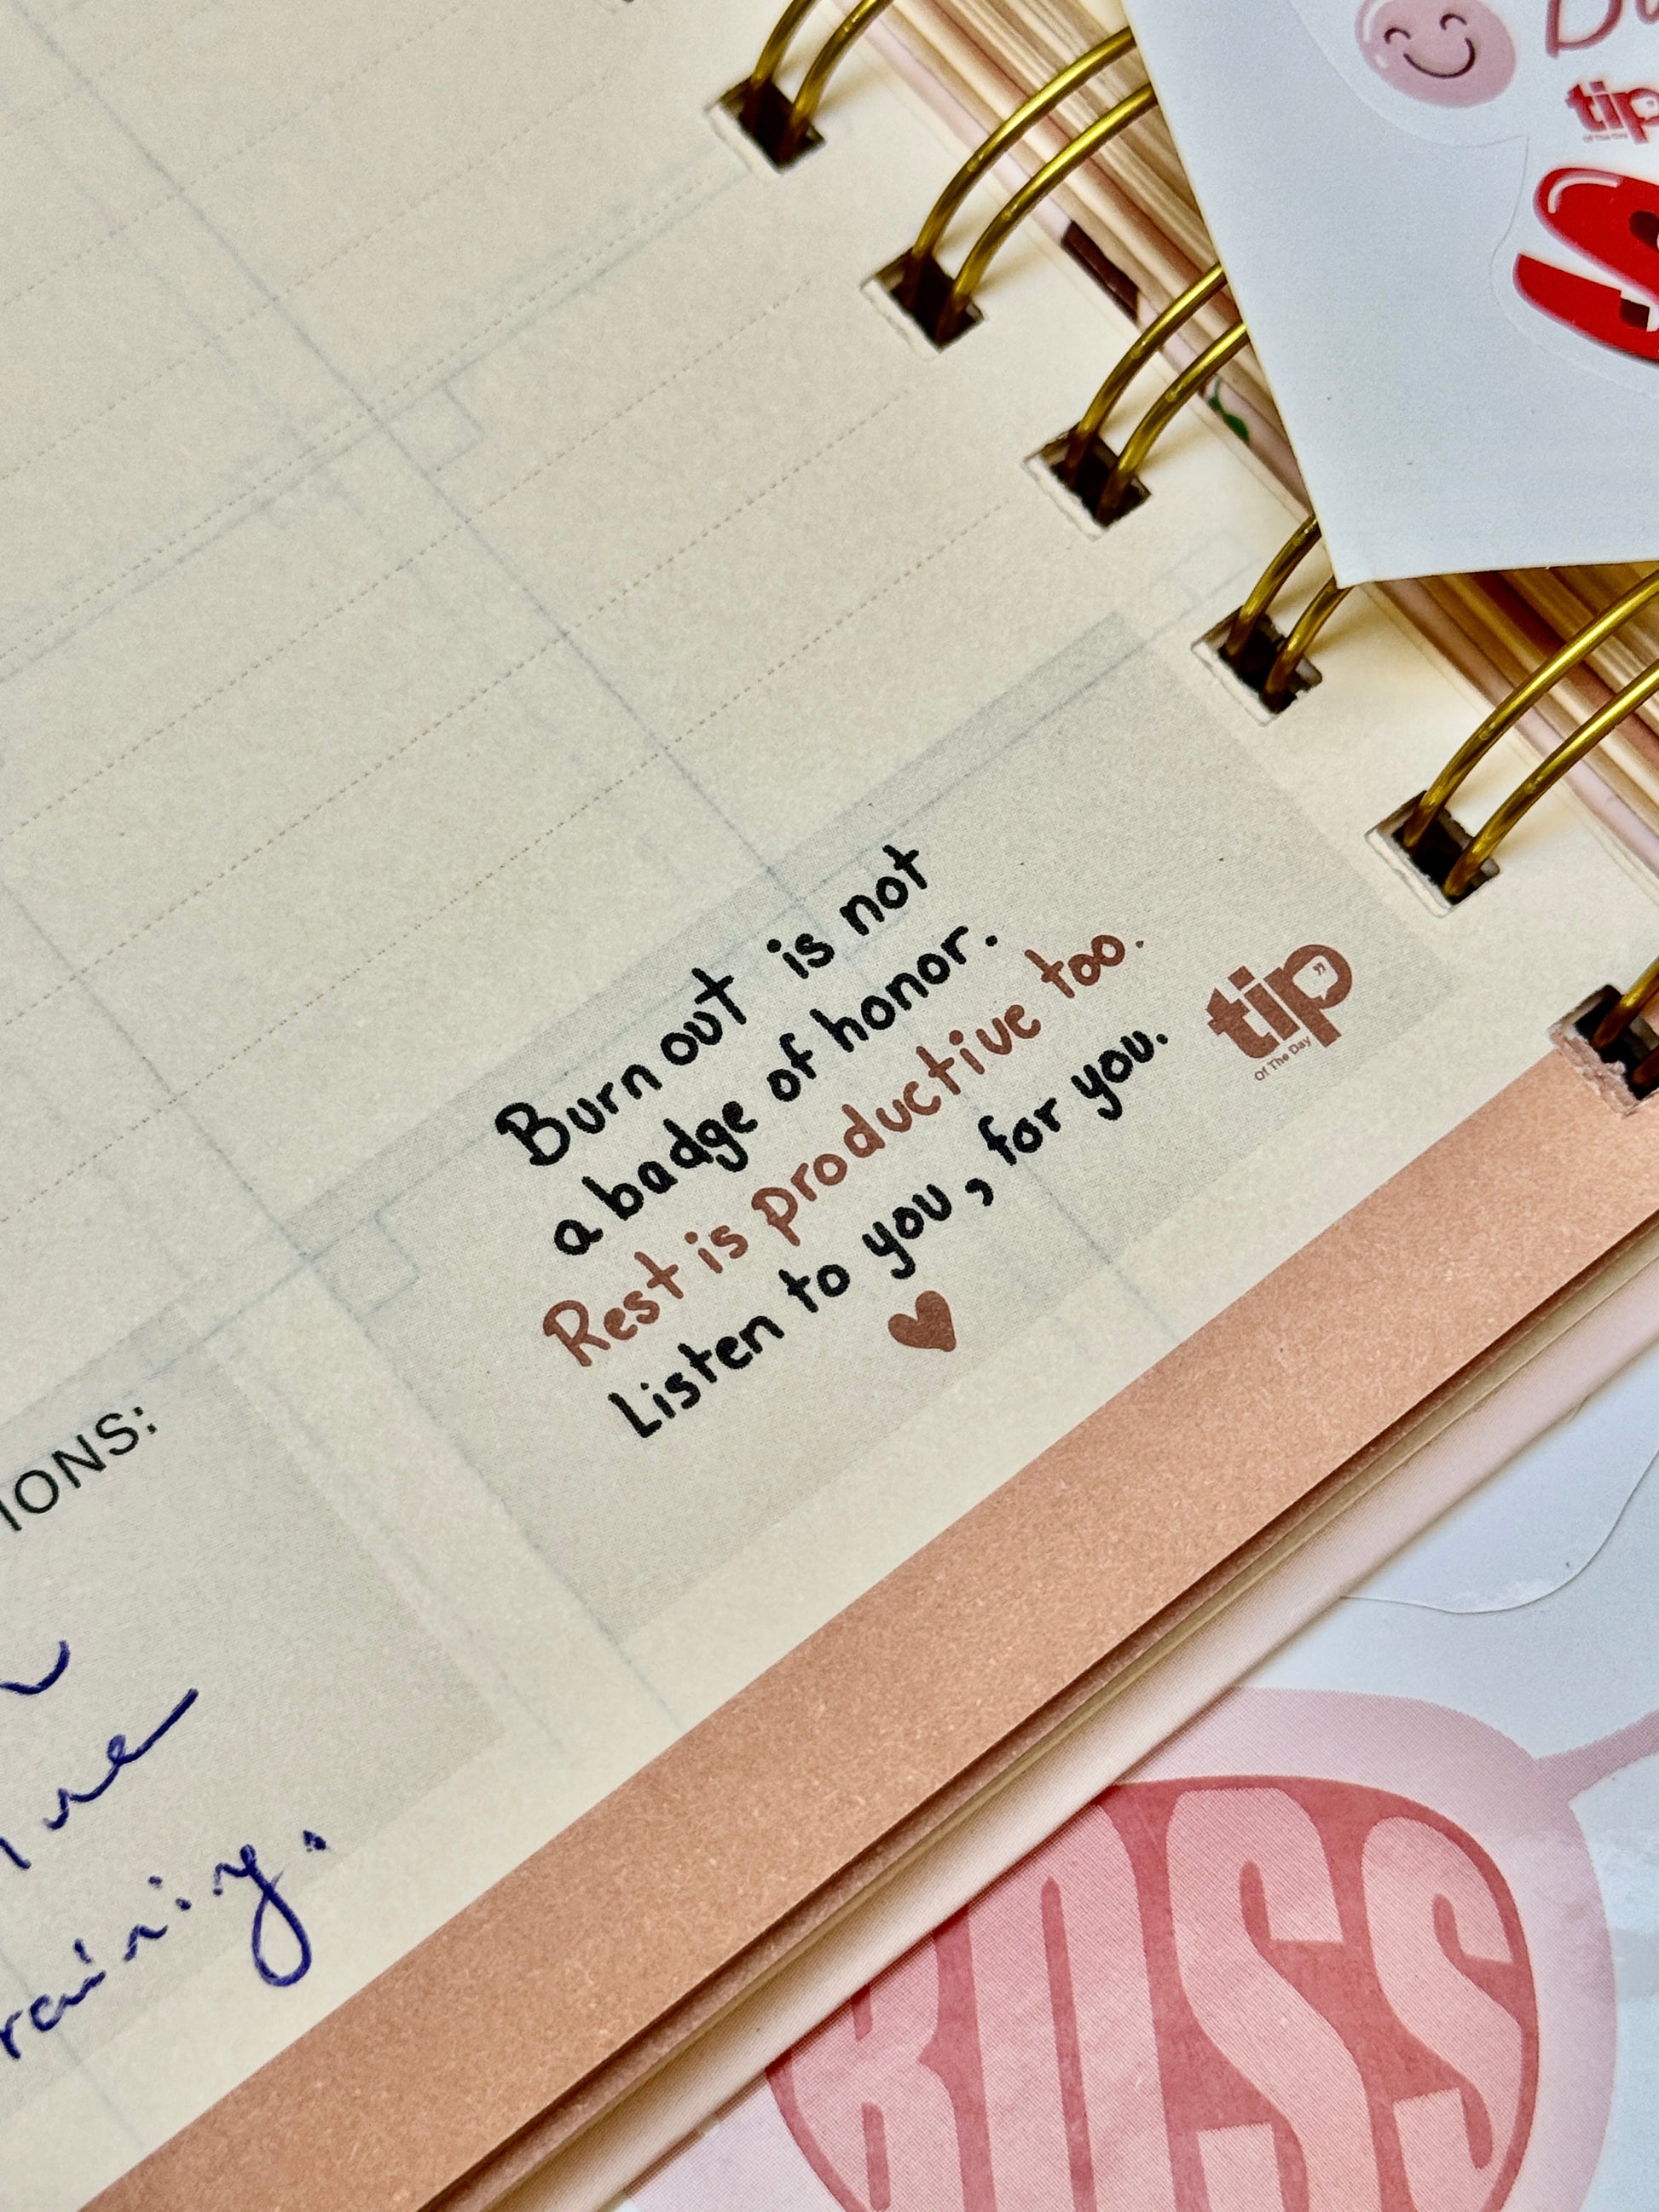 tip
Burn out is not
a badge of honor.
Rest is productive too.
Listen to you, for you.
tip
Of The Day
IONS:
raining.
BOSS